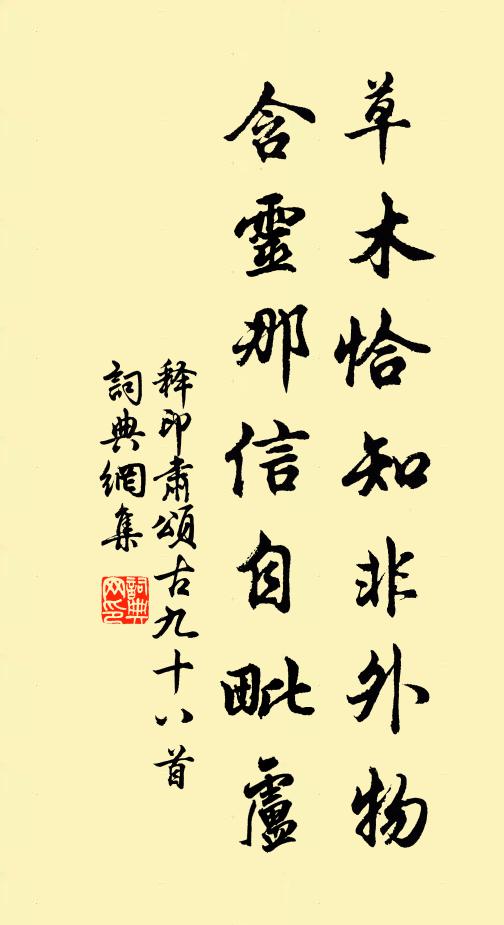 草木恰知非外物
含靈那信自毗盧
释印肃頌古九十八首
詞典網集
詞典网印